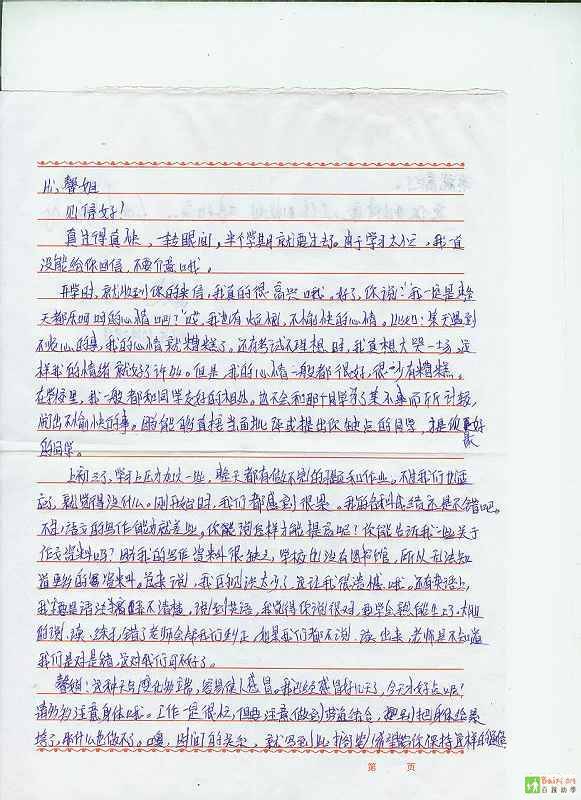 Hi、馨姐
见信好！
真过得真快，一转眼间，半个学期就要过去了。由于学习太忙，我一直
没能给你回信，不要介意哦。
开学时，就收到你的来信，我真的很高兴哦。好了，你说："我一定是整
天都乐呵呵的心情吧？"哎，我也有烦恼，不愉快的心情。比如：某天遇到
不顺心的事，我的心情就糟糕了。还有考试不理想时，我真想大哭一场，这
样我的情绪就好了许多。但是，我的心情一般都很好，很少有糟糕。
在学校里，我一般都和同学友好的相处。并不会和那个同学为了某小事而斤斤计较，
闹出不愉快的事。那能够直接当面批评或提出你缺点的同学，才是做最好
的同学。
上初三了，学习上压力加大一些，整天都有做不完的习题和作业。不过我们也适
应了，就觉得没什么。刚开始时，我们都感到很累。我的各科成绩还是不错吧。
不过语文的写作能力就差些，你能说怎样才能提高呢？你能告诉我一些关于
作文资料吗？因为我的写作资料很缺乏，学校也没有图书馆，所以无法知
道更多的资料。简来说，我压根读太少了，这让我很遗憾哦。还有英语上，
我主要是语法搞不清楚，说到英语，我觉得你说很对，要学会题能上了，大胆
的说、读、练习，错了老师会给我们纠正，如果我们都不说、读出来，老师是不知道
我们是对是错，这对我们可不好了。
馨姐：这种天气变化多端，容易使人感冒。我已经感冒好几天了，今天才好点呢！
请你多注意身体哦。工作一定很忙，但要注意做到劳逸结合，要是把身体给累
垮了，那什么也做不了。噢，时间的关系，就写到此搁笔！希望馨你保持这样的
第 页
百孩助學